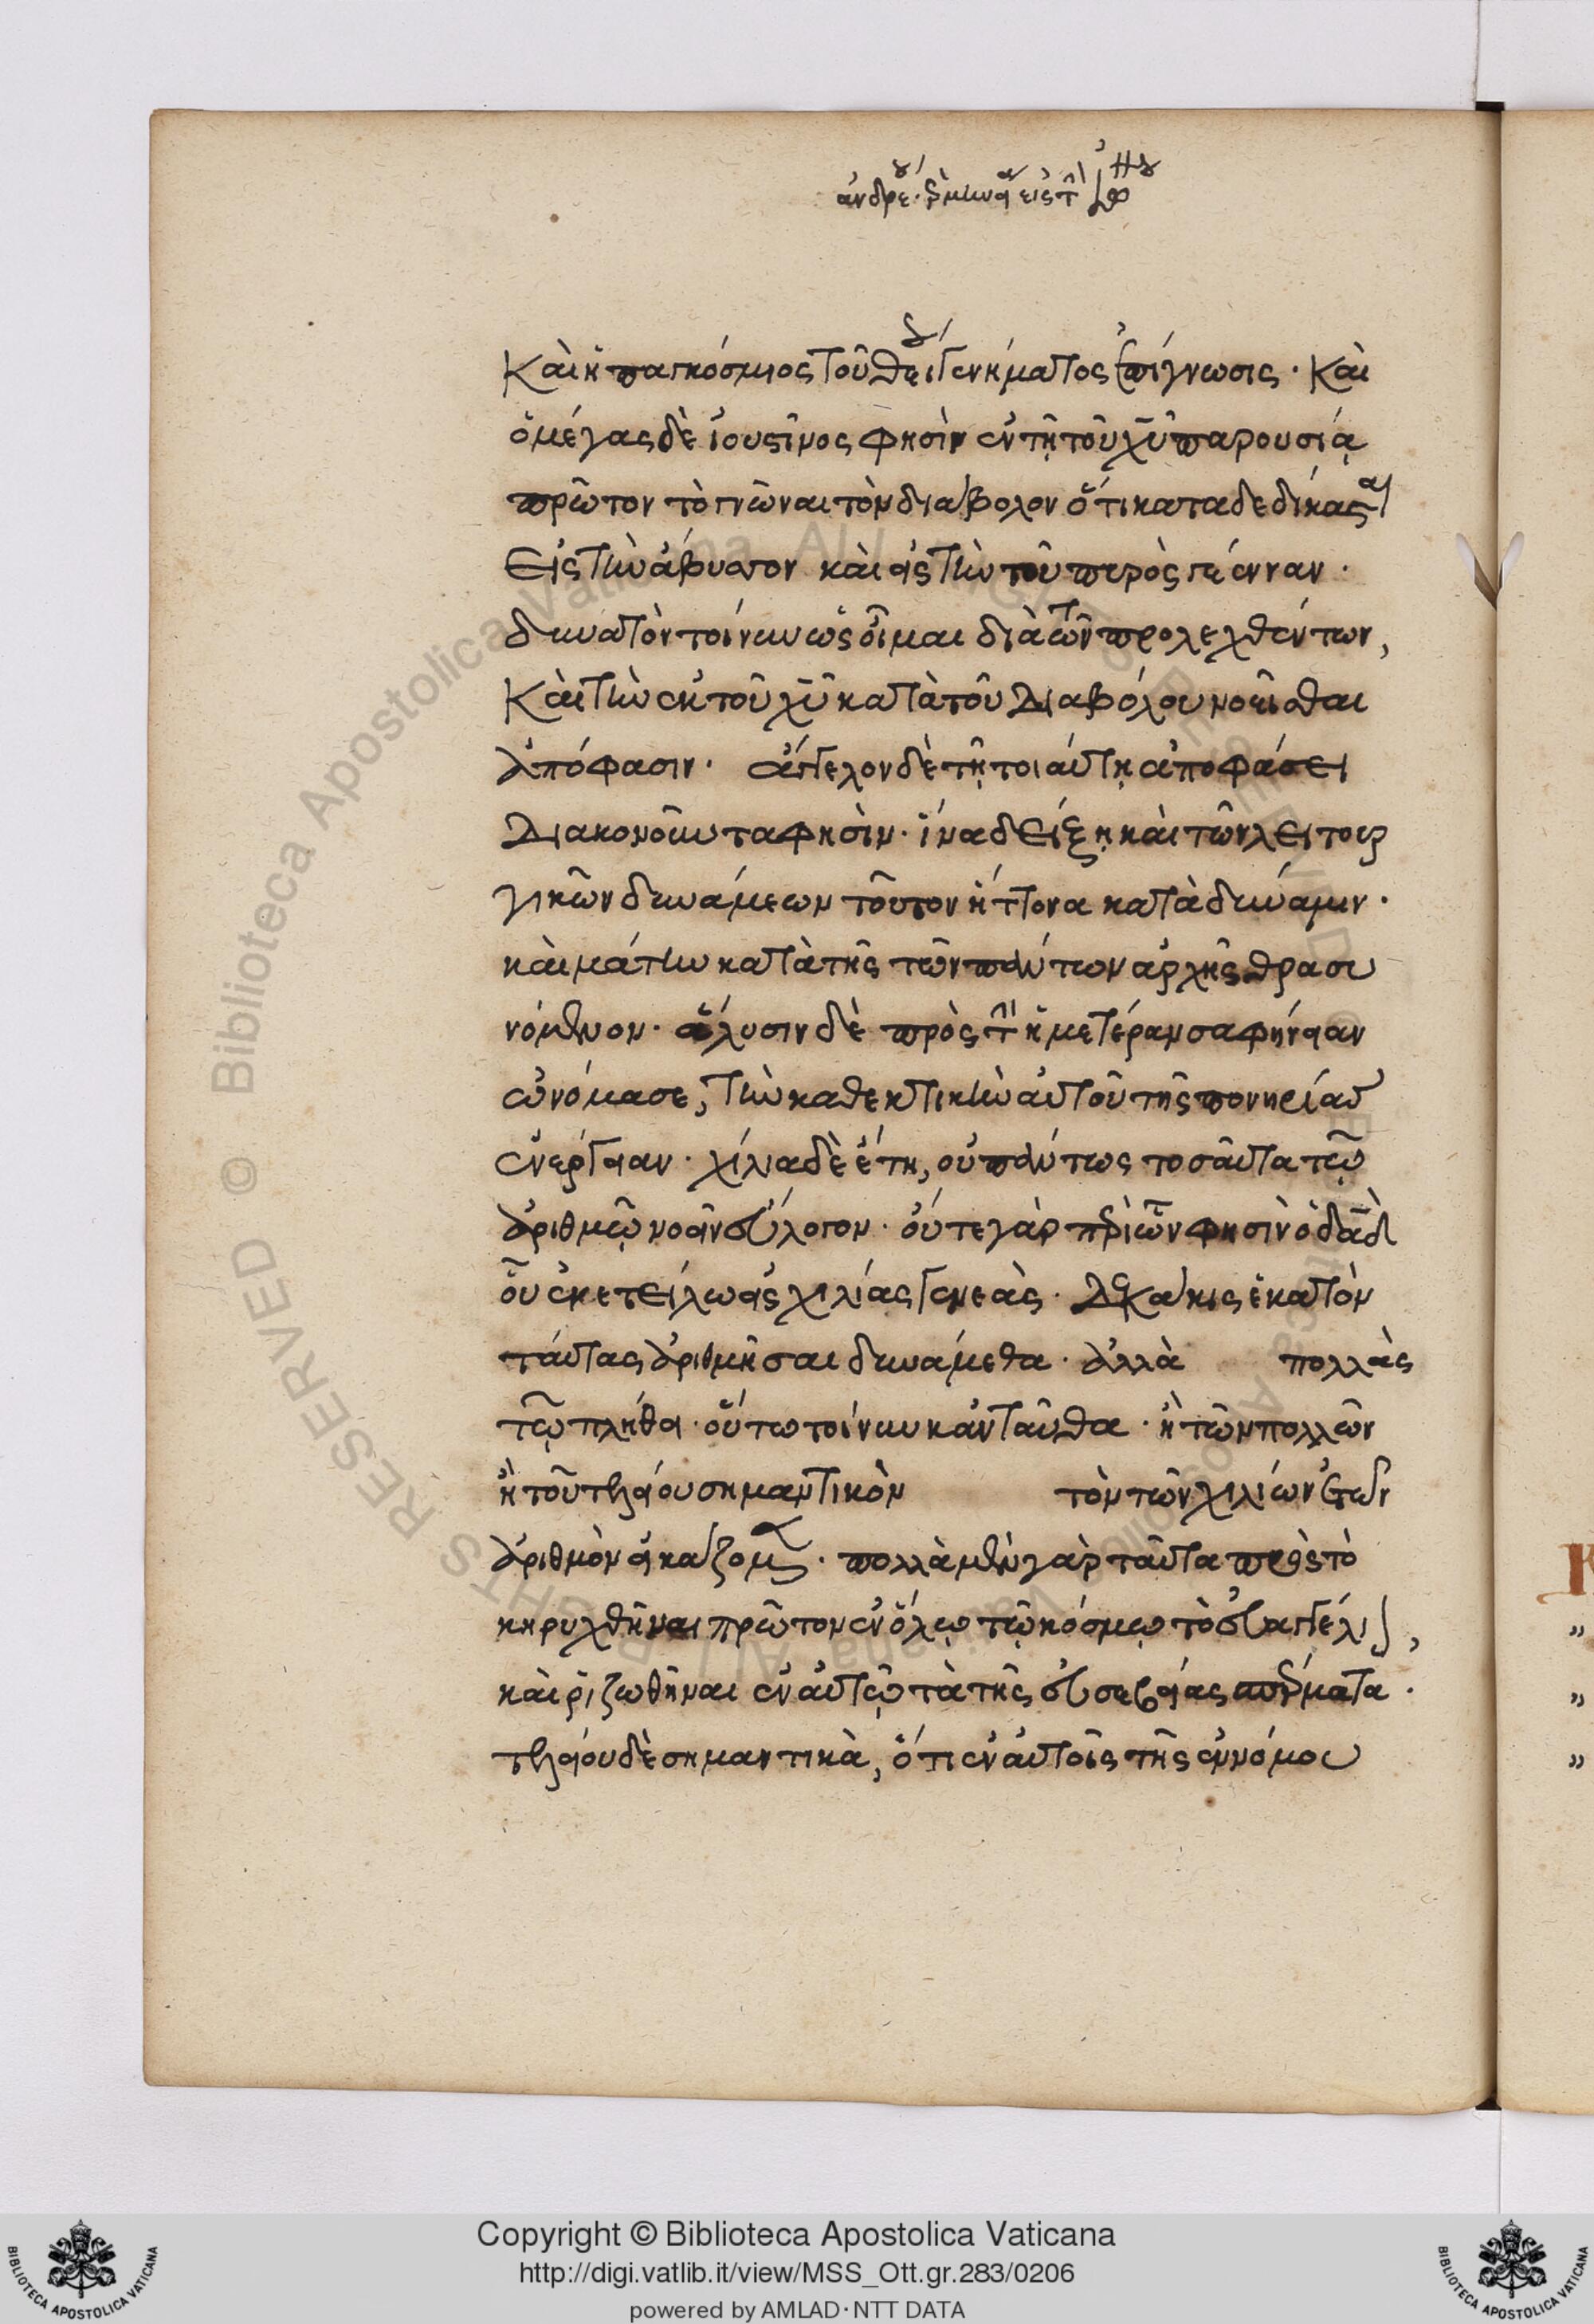 ἀνδρέου ἑρμηνεία εἰς τὴν
Καὶ ἡ παγκόσμιος τοῦ θείου γεννήματος ἐπίγνωσις · Καὶ
ὁ μέγας δὲ ἰουστῖνος φησὶν ἐν τῇ τοῦ χυ παρουσίᾳ
πρῶτον τὸ γνῶναι τὸν διάβολον ὅτι καταδεδίκασται
Εἰς τὴν ἄβυσσον καὶ εἰς τὴν τοῦ πυρὸς γέενναν ·
δυνατὸν τοίνυν ὡς οἶμαι διὰ τῶν προλεχθέντων,
Καὶ τὴν ἐκ τοῦ χυ κατὰ τοῦ Διαβόλου νοεῖσθαι
ἀπόφασιν · ἄγγελον δὲ τῇ τοιαύτῃ ἀποφάσει
Διακονοῦντα φησὶν · ἵνα δείξῃ καὶ τῶν λειτουρ
γικῶν δυνάμεων τοῦτον ἥττονα κατὰ δύναμιν ·
καὶ μάτην κατὰ τῆς τῶν πάντων ἀρχῆς θρασυ
νόμενον · ἅλυσιν δὲ πρὸς τὴν ἡμετέραν σαφήνειαν
ὠνόμασε, τὴν καθεκτικὴν αὐτοῦ τῆς πονηρίας
ἐνέργειαν · χίλια δὲ ἔτη, οὐ πάντως τοσαῦτα τῷ
ἀριθμῷ νοεῖν εὔλογον · οὔτε γὰρ περὶ ὧν φησὶν ὁ δαδ
οὗ ἐνετείλω εἰς χιλίας γενεὰς · Δεκάκις ἑκατὸν
ταύτας ἀριθμῆσαι δυνάμεθα · ἀλλὰ πολλὰς
τῷ πλήθει · οὕτω τοίνυν κἀνταῦθα · ἢ τῶν πολλῶν
ἢ τοῦ τελείου σημαντικὸν τὸν τῶν χιλίων ἐτῶν
ἀριθμὸν εἰκάζομεν · πολλὰ μὲν γὰρ ταῦτα πρὸς τὸ
κηρυχθῆναι πρῶτον ἐν ὅλῳ τῷ κόσμῳ τὸ εὐαγγέλιον,
καὶ ῥιζωθῆναι ἐν αὐτῷ τὰ τῆς εὐσεβείας σπέρματα ·
τελείου δὲ σημαντικὰ, ὅτι ἐν αὐτοῖς τῆς ἐννόμου
Copyright © Biblioteca Apostolica Vaticana
http://digi.vatlib.it/view/MSS_Ott.gr.283/0206
powered by AMLAD·NTT DATA